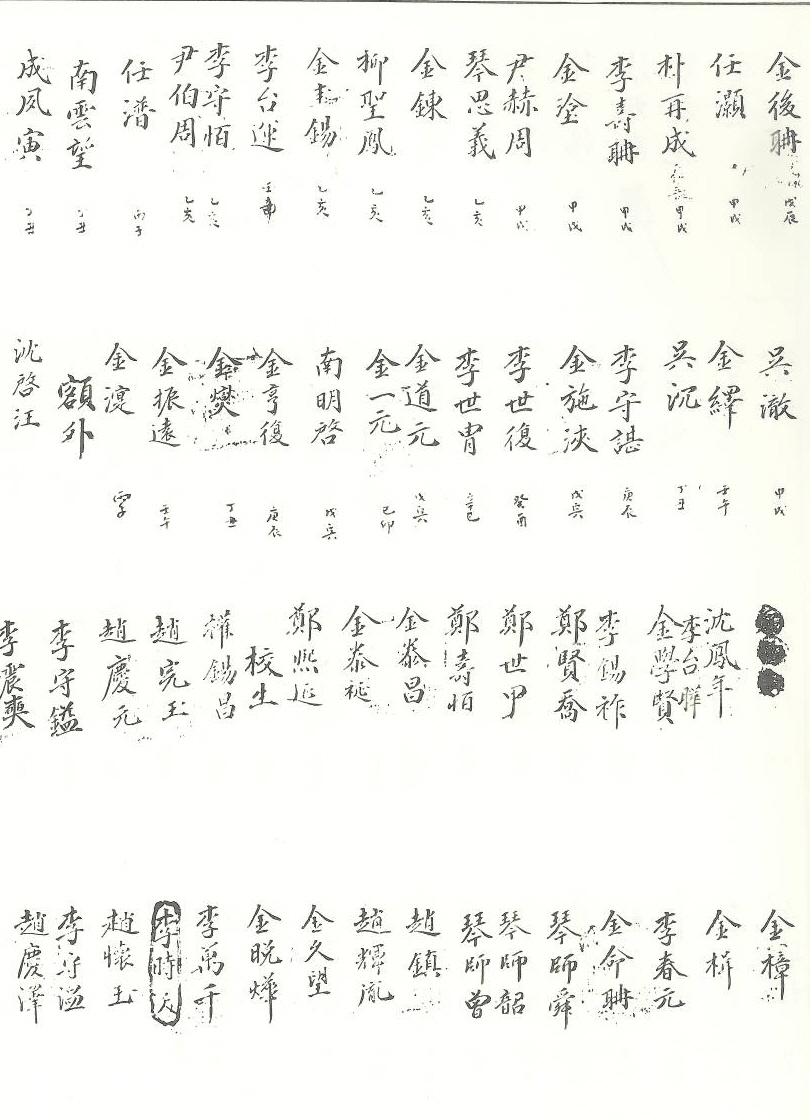 金後聃 戊辰
任灝 甲戌
朴再成 甲戌
李壽聃 甲戌
金塗 甲戌
尹赫周 甲戌
琴思義 乙亥
金鍊 乙亥
柳聖鳳 乙亥
金 錫 乙亥
李台運 壬
李守恒 乙亥
尹伯周 乙亥
任濳 丙子
南雲望 丁丑
成夙寅 丁丑
吳澈 甲戌
金繹 壬午
吳沉 丁丑
李守諶 庚辰
金施浹 戊寅
李世復 癸酉
李世冑 辛巳
金道元 戊寅
金一元 己卯
南明啓 戊寅
金亨復 庚辰
金爕 丁丑
金振遠 壬午
金
額外
沈啓汪
沈鳳年
李台
金學賢
李錫祚
鄭賢喬
鄭世甲
鄭壽恒
金㤗昌
金㤗祉
鄭熙延
校生
權錫昌
趙完玉
趙慶元
李守鎰
李震奭
金樟
金楫
李春元
金命聃
琴師舜
琴師韶
琴師曾
趙鎮
趙輝胤
金久望
金晩燁
李萬千
李時
趙懷玉
李守溢
趙慶澤